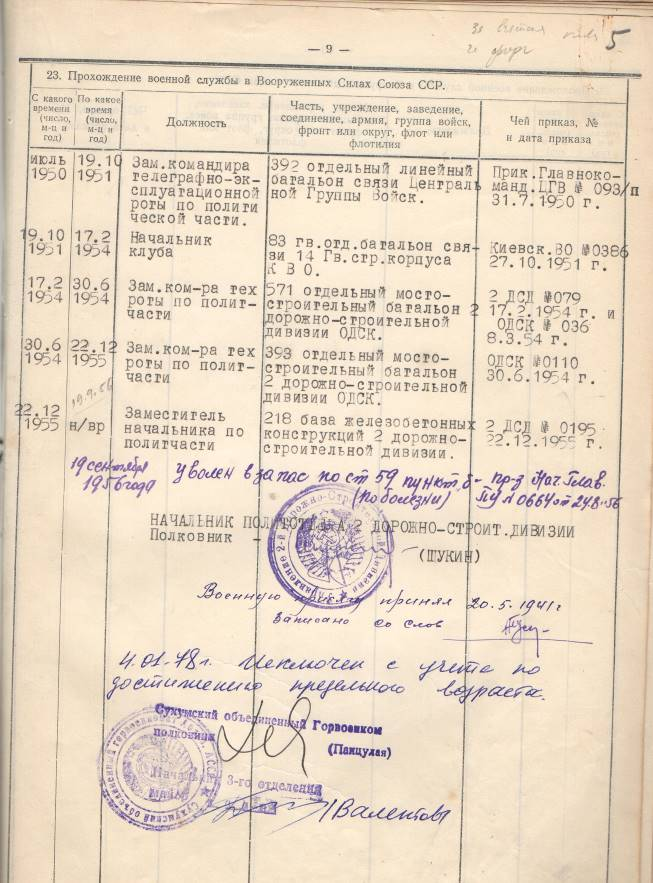 5
— 9 —
23. Прохождение военной службы в Вооруженных Силах Союза ССР.
С какого времени (число, м-ц и год)
По какое время (число, м-ц и год)
Должность
Часть, учреждение, заведение, соединение, армия, группа войск, фронт или округ, флот или флотилия
Чей приказ, № и дата приказа
июль 1950
19.10 1951
Зам.командира
телеграфно-эк-
сплуатационной
роты по полити
ческой части.
392 отдельный линейный
батальон связи Централь
ной Группы Войск.
Прик.Главноко-
манд.ЦГВ № 093/п
31.7.1950 г.
19.10 1951
17.2 1954
Начальник
клуба
83 гв.отд.батальон свя-
зи 14 Гв.стр.корпуса
К В О.
Киевск.ВО №0386
27.10.1951 г.
17.2 1954
30.6 1954
Зам.ком-ра тех
роты по полит-
части
571 отдельный мосто-
строительный батальон 2
дорожно-строительной
дивизии ОДСК.
2 ДСД №079
17.2.1954 г. и
ОДСК № 036
8.3.54 г.
30.6 1954
22.12 1955
Зам.ком-ра тех
роты по полит-
части
393 отдельный мосто-
строительный батальон
2 дорожно-строительной
дивизии ОДСК.
ОДСК №0110
30.6.1954 г.
19.9.56
22.12 1955
н/вр
Заместитель
начальника по
политчасти
218 база железобетонных
конструкций 2 дорожно-
строительной дивизии.
2 ДСД № 0195
22.12.1955 г.
19 сентября
1956 года
уволен в запас по ст 59 пункт „б“ - пр-з Нач. Глав.
(по болезни) ПУ № 0664 от 24.8-56
НАЧАЛЬНИК ПОЛИТОТДЕЛА 2 ДОРОЖНО-СТРОИТ.ДИВИЗИИ
Полковник -
(ЩУКИН)
Военную присягу принял 20.5.1941г
Записано со слов
4.01.78 г. Исключен с учета по
достижению предельного возраста.
Сухумский объединенный Горвоенком
полковник
(Панцулая)
3-го отделения
Валентов